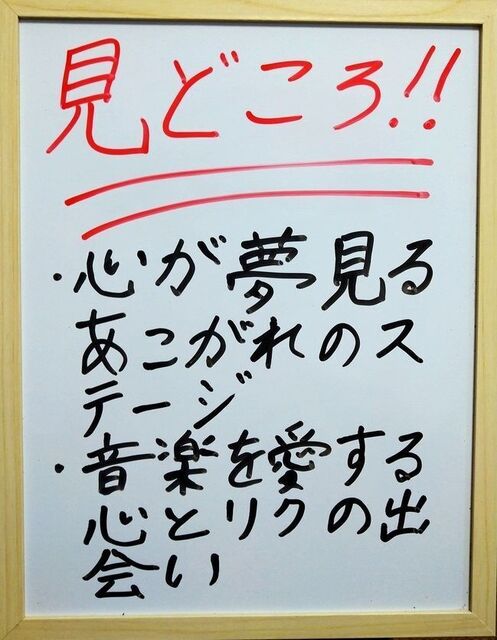 見どころ!!
・心が夢見る
あこがれのス
テージ
・音楽を愛する
心とリクの出
会い